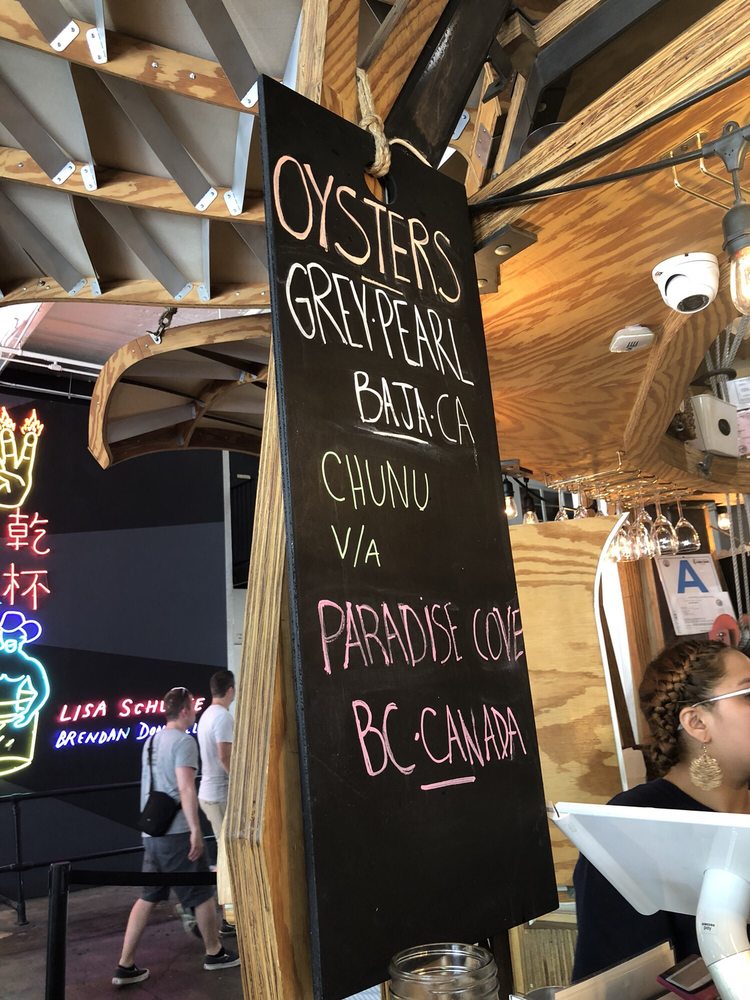 OYSTERS
GREY·PEARL
BAJA·CA
CHUNU
V/A
PARADISE COVE
BC·CANADA
乾
杯
LISA
BRENDAN
A